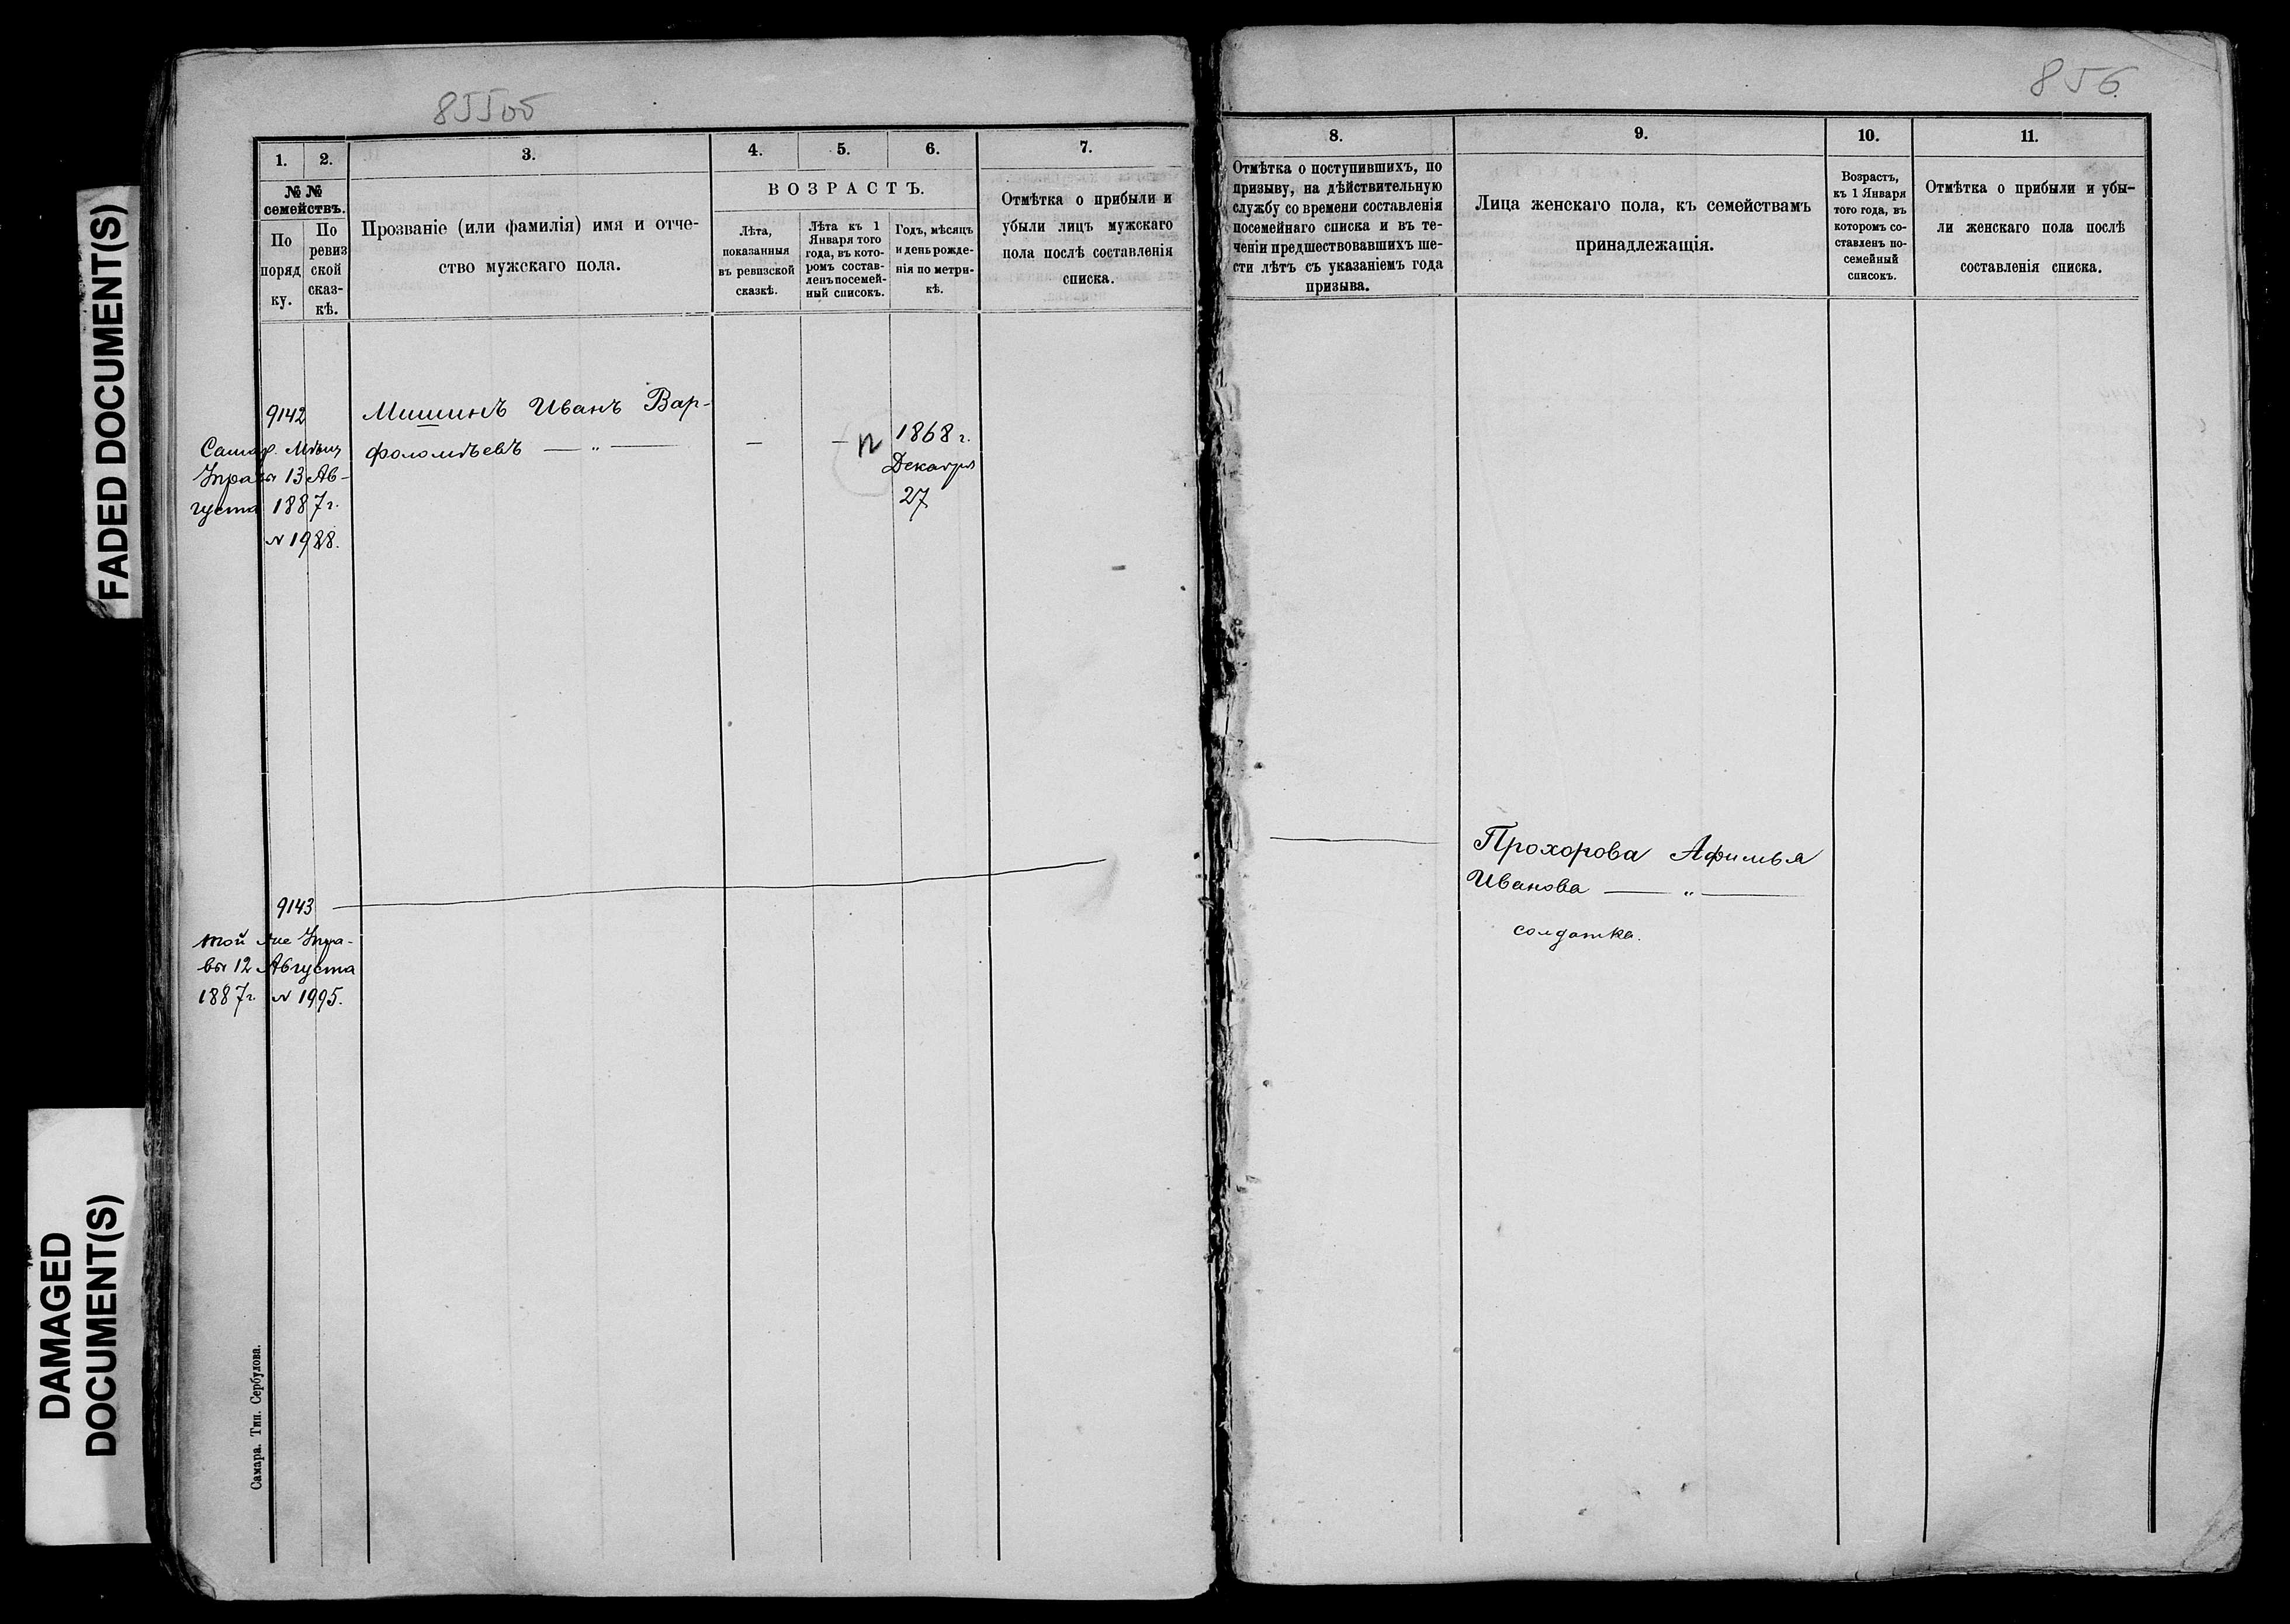 FADED DOCUMENT(S)
DAMAGED
DOCUMENT(S)
855об
1.
2.
3.
4.
5.
6.
7.
№ №
семействъ.
По
поряд
ку.
По
ревиз
ской
сказ-
кѣ.
Прозваніе (или фамилія) имя и отче-
ство мужскаго пола.
ВОЗРАСТЪ.
Лѣта,
показанныя
въ ревизской
сказкѣ.
Лѣта къ 1
Января того
года, въ кото-
ромъ состав-
ленъ посемей-
ный списокъ.
Годъ, мѣсяцъ
и день рожде-
нія по метри-
кѣ.
Отмѣтка о прибыли и
убыли лицъ мужскаго
пола послѣ составленія
списка.
9142
Самар. Мѣщ
Управы 13 Ав-
густа 1887 г.
№ 1988.
Мишинъ Иванъ Вар-
фоломѣевъ — „ —
— —
1868 г.
Декабря
27
9143
той же Упра-
вы 12 Августа
1887 г. № 1995.
Самара. Тип. Сербулова.
856
8.
9.
10.
11.
Отмѣтка о поступившихъ, по
призыву, на дѣйствительную
службу со времени составленія
посемейнаго списка и въ те-
ченіи предшествовавшихъ ше-
сти лѣтъ съ указаніемъ года
призыва.
Лица женскаго пола, къ семействамъ
принадлежащія.
Возрастъ,
къ 1 Января
того года, въ
которомъ со-
ставленъ по-
семейный
списокъ.
Отмѣтка о прибыли и убы-
ли женскаго пола послѣ
составленія списка.
Прохорова Афимья
Иванова — „ —
солдатка.